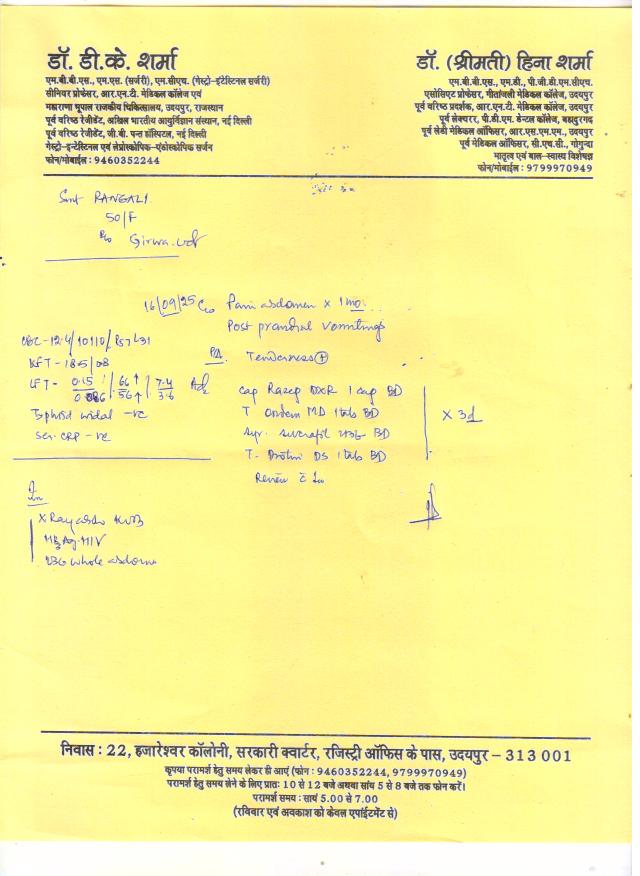 डॉ. डी.के. शर्मा
एम.बी.बी.एस., एम.एस. (सर्जरी), एम.सीएच. (गेस्ट्रो-इंटेस्टिनल सर्जरी)
सीनियर प्रोफेसर, आर.एन.टी. मेडिकल कॉलेज एवं
महाराणा भूपाल राजकीय चिकित्सालय, उदयपुर, राजस्थान
पूर्व वरिष्ठ रेजीडेंट, अखिल भारतीय आयुर्विज्ञान संस्थान, नई दिल्ली
पूर्व वरिष्ठ रेजीडेंट, जी.बी. पन्त हॉस्पिटल, नई दिल्ली
गेस्ट्रो-इन्टेस्टिनल एवं लेप्रोस्कोपिक-एंडोस्कोपिक सर्जन
फोन/मोबाईल : 9460352244
डॉ. (श्रीमती) हिना शर्मा
एम.बी.बी.एस., एम.डी., पी.जी.डी.एम.सीएच.
एसोसिएट प्रोफेसर, गीतांजली मेडिकल कॉलेज, उदयपुर
पूर्व वरिष्ठ प्रदर्शक, आर.एन.टी. मेडिकल कॉलेज, उदयपुर
पूर्व लेक्चरर, पी.डी.एम. डेन्टल कॉलेज, बहादुरगढ
पूर्व लेडी मेडिकल ऑफिसर, आर.एस.एम.एम., उदयपुर
पूर्व मेडिकल ऑफिसर, सी.एच.सी., गोगुन्दा
मातृत्व एवं बाल-स्वास्थ्य विशेषज्ञ
फोन/मोबाईल : 9799970949
Smt RANGALI
50/F
R/o Girwa. Udr
16/09/25 C/o Pain abdomen x 1 mo.
Post prandial vomitings
CBC - 12.4/10110/P57 L31
P/A. Tenderness +
KFT - 18.5/0.8
LFT - 0.15/0.086 66↑/56↑ 7.4/3.6
Adv
cap Razep DXR 1 cap BD
Typhoid widal -ve
T Ondem MD 1 tab BD
x 3d
Ser. CRP - ve
Syr. Sucrafil BD
T. Drotin DS 1 tab BD
Review c̄
X Ray abdo KUB
HBsAg. HIV
USG whole abdomen
निवास : 22, हजारेश्वर कॉलोनी, सरकारी क्वार्टर, रजिस्ट्री ऑफिस के पास, उदयपुर – 313 001
कृपया परामर्श हेतु समय लेकर ही आएं (फोन : 9460352244, 9799970949)
परामर्श हेतु समय लेने के लिए प्रातः 10 से 12 बजे अथवा सांय 5 से 8 बजे तक फोन करें।
परामर्श समय : सायं 5.00 से 7.00
(रविवार एवं अवकाश को केवल एपॉईंटमेंट से)